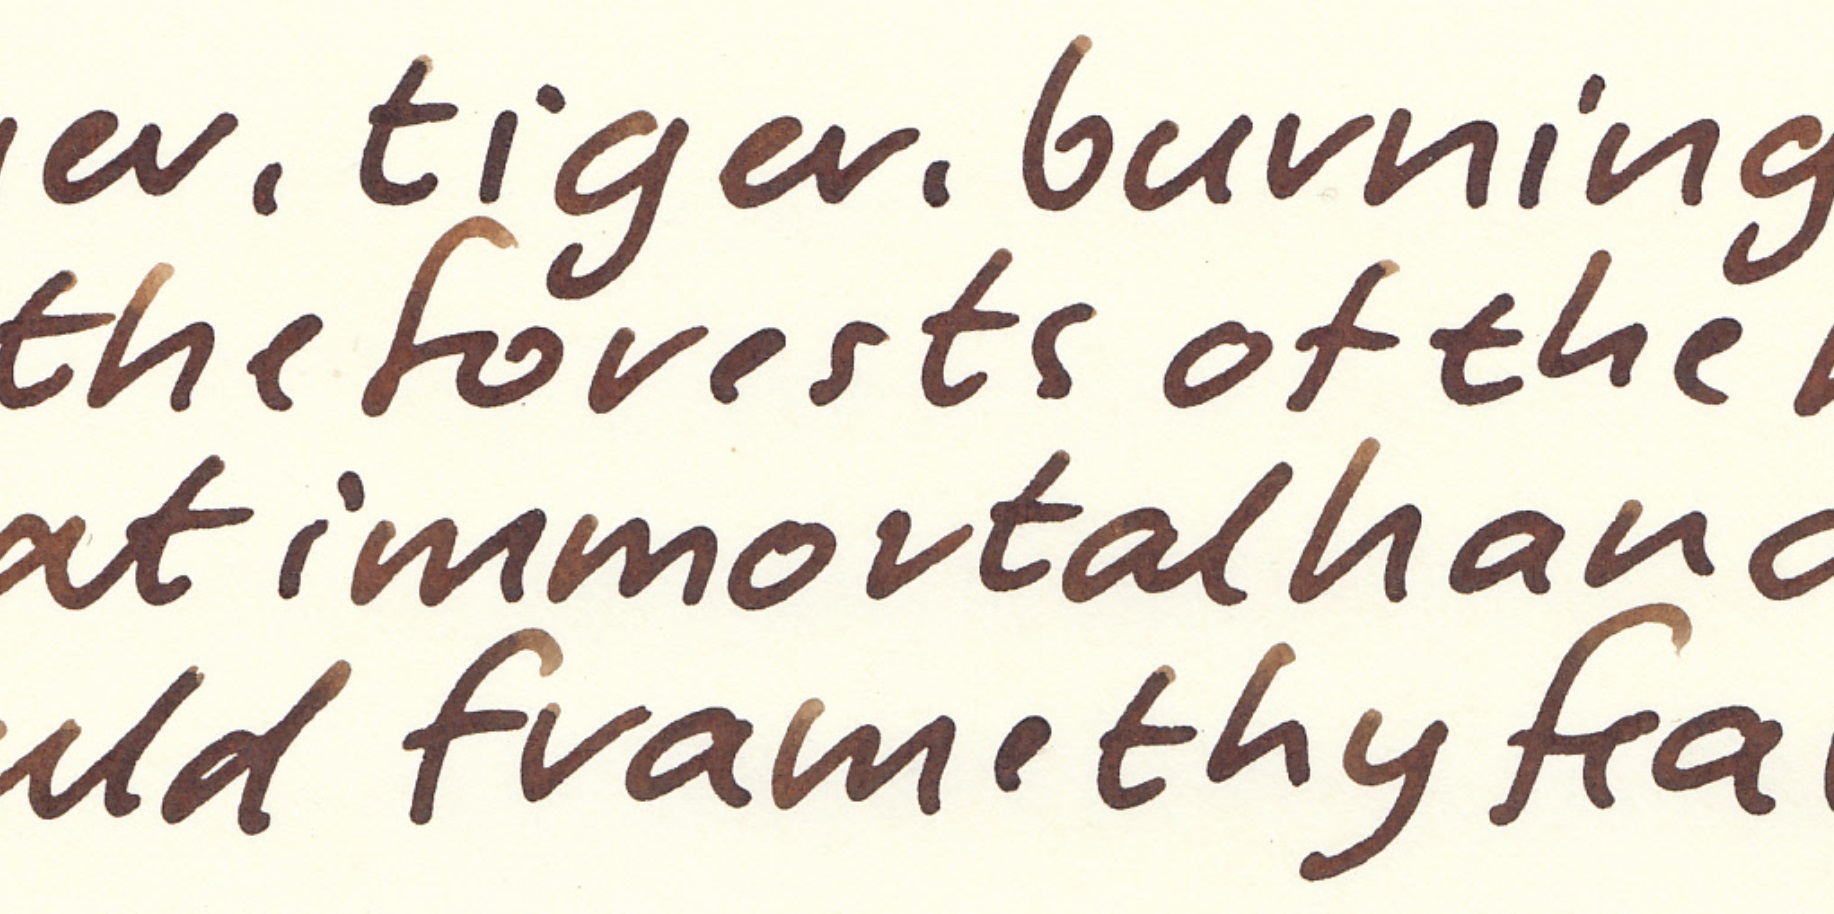 ger, tiger, burning
the forests of the
at immortal hand
uld frame thy fea